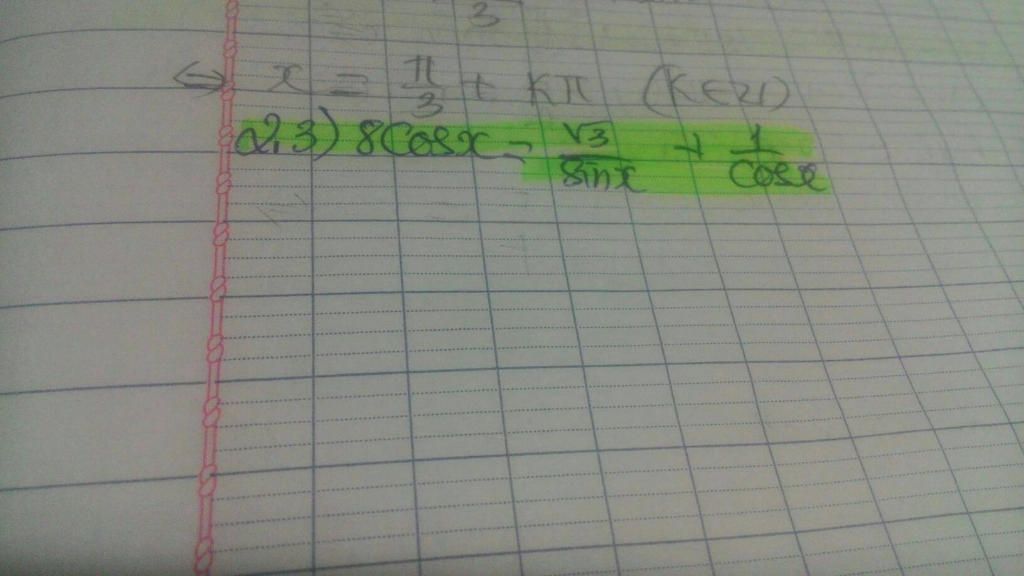 3
⇔ x = π/3 + Kπ (K ∈ Z)
2,3) 8Cosx = √3/Sinx + 1/Cosx